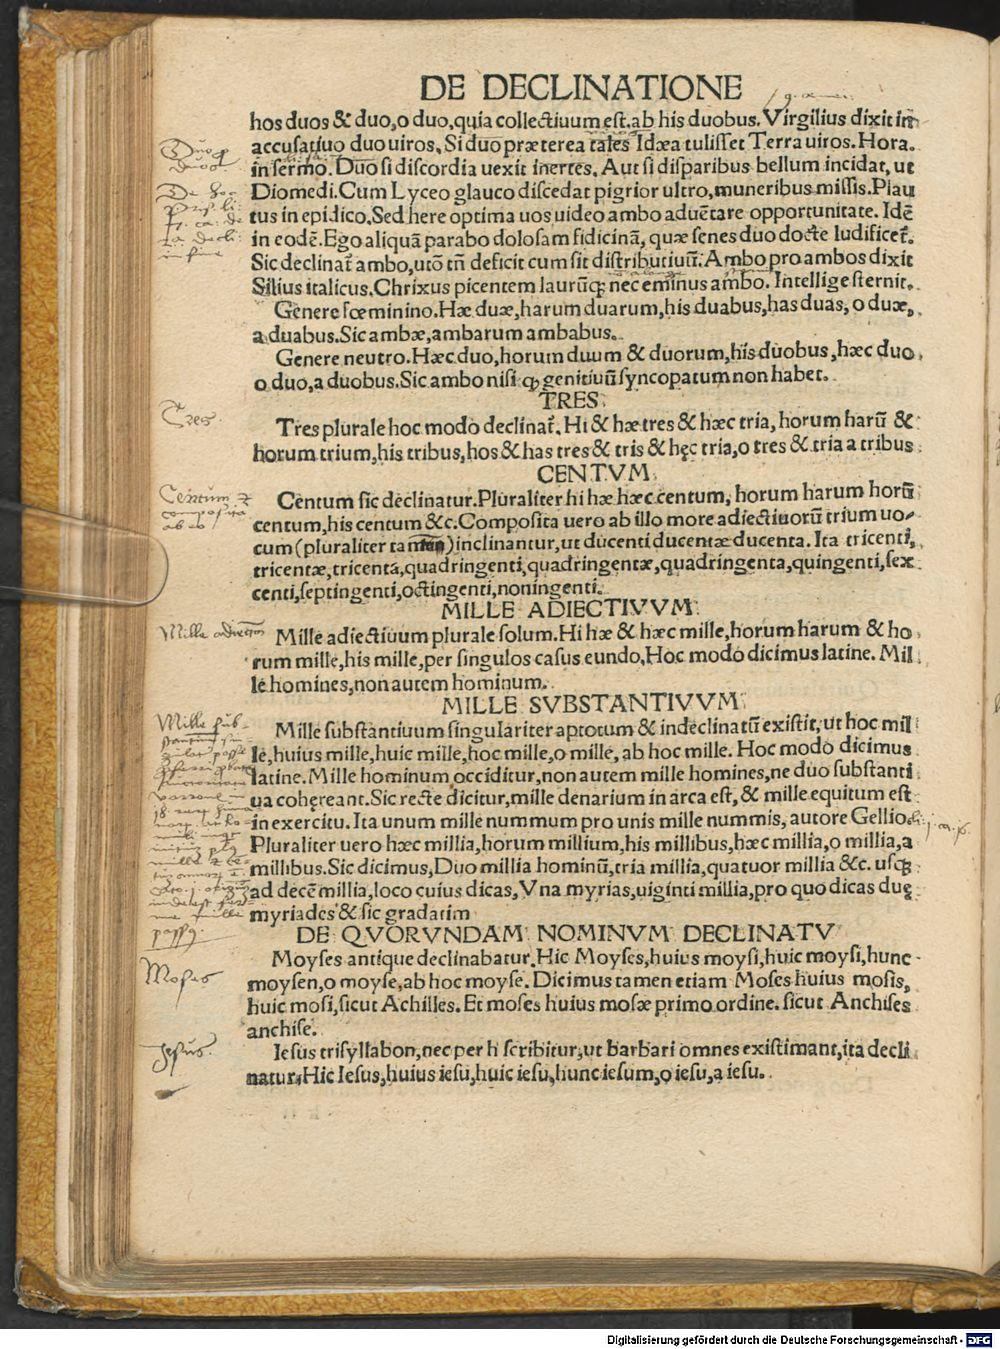 DE DECLINATIONE
hos duos & duo, o duo, quia collectiuum est, ab his duobus. Virgilius dixit in
accusatiuo duo uiros. Si duo præterea tales Idæa tulisset Terra uiros. Hora.
in sermo. Duo si discordia uexit inertes. Aut si disparibus bellum incidat, ut
Diomedi. Cum Lyceo glauco discedat pigrior ultro, muneribus missis. Plau
tus in epidico. Sed here optima uos uideo ambo aduẽtare opportunitate. Idẽ
in eodẽ. Ego aliquã parabo dolosam fidicinã, quæ senes duo docte ludificet̃.
Sic declinat̃ ambo, utõ tñ deficit cum sit distributiuũ. Ambo pro ambos dixit
Silius italicus. Chrixus picentem laurũq; nec eminus ambo. Intellige sternit.
Genere fœminino. Hæ duæ, harum duarum, his duabus, has duas, o duæ,
a duabus. Sic ambæ, ambarum ambabus.
Genere neutro. Hæc duo, horum duum & duorum, his duobus, hæc duo,
o duo, a duobus. Sic ambo nisi ꝙ genitiuũ syncopatum non habet.
TRES
Tres plurale hoc modo declinat̃. Hi & hæ tres & hæc tria, horum harũ &
horum trium, his tribus, hos & has tres & tris & hęc tria, o tres & tria a tribus
CENTVM
Centum sic declinatur. Pluraliter hi hæ hæc centum, horum harum horũ
centum, his centum &c. Composita uero ab illo more adiectiuorũ trium uo-
cum (pluraliter tamen) inclinantur, ut ducenti ducentæ ducenta. Ita tricenti,
tricentæ, tricenta, quadringenti, quadringentæ, quadringenta, quingenti, sex
centi, septingenti, octingenti, noningenti.
MILLE ADIECTIVVM
Mille adiectiuum plurale solum. Hi hæ & hæc mille, horum harum & ho
rum mille, his mille, per singulos casus eundo. Hoc modo dicimus latine. Mil
le homines, non autem hominum.
MILLE SVBSTANTIVVM
Mille substantiuum singulariter aptotum & indeclinatũ existit, ut hoc mil
le, huius mille, huic mille, hoc mille, o mille, ab hoc mille. Hoc modo dicimus
latine. Mille hominum occiditur, non autem mille homines, ne duo substanti
ua cohęreant. Sic recte dicitur, mille denarium in arca est, & mille equitum est
in exercitu. Ita unum mille nummum pro unis mille nummis, autore Gellio
Pluraliter uero hæc millia, horum millium, his millibus, hæc millia, o millia, a
millibus. Sic dicimus, Duo millia hominũ, tria millia, quatuor millia &c. usq;
ad decẽ millia, loco cuius dicas, Vna myrias, uiginti millia, pro quo dicas duę
myriades & sic gradatim
DE QVORVNDAM NOMINVM DECLINATV
Moyses antique declinabatur. Hic Moyses, huius moysi, huic moysi, hunc
moysen, o moyse, ab hoc moyse. Dicimus tamen etiam Moses huius mosis,
huic mosi, sicut Achilles. Et moses huius mosæ primo ordine. sicut Anchises
anchise.
Iesus trisyllabon, nec per h scribitur, ut barbari omnes existimant, ita decli
natur, Hic Iesus, huius iesu, huic iesu, hunc iesum, o iesu, a iesu.
Tres.
Centum &
composita
ab eo
Mille
Mille sub-
Moses
Jesus.
Digitalisierung gefördert durch die Deutsche Forschungsgemeinschaft - DFG